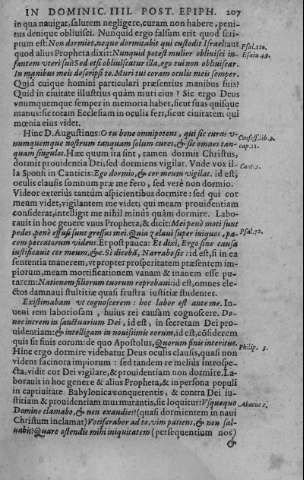 IN DOMINIC. IIII. POST. EPIPH. 207
in qua nauigat, salutem negligere, curam non habere, peni-
tus denique obliuisci. Nunquid ergo falsum erit quod scri-
ptum est: Non dormiet, neque dormitabit qui custodit Israel: aut Psal. 120.
quod alius Propheta dixit: Nunquid potest mulier obliuisci in- Esaia 49.
fantem vteri sui? Sed etsi obliuiscatur illa, ego tui non obliuiscar.
In manibus meis descripsi te. Muri tui coram oculis meis semper.
Quid cuique homini particulari præsentius manibus suis?
Quid in ciuitate illustrius quàm muri eius? Sic ergo Deus
vnumquemque semper in memoria habet, sicut suas quisque
manus: sic totam Ecclesiam in oculis fert, sicut ciuitatem qui
mœnia eius videt.
Hinc D. Augustinus: O tu bone omnipotens, qui sic curas v- Confess. lib. 3.
numquemque nostrum tanquam solum cures, & sic omnes tan- cap. 11.
quam singulos. Hæc quum ita sint, tamen dormit Christus,
dormit prouidentia Dei, sed dormiens vigilat. Vnde vox il-
la Sponsi in Canticis: Ego dormio, & cor meum vigilat. id est, Cant. 5.
oculis clausis somnum præ me fero, sed verè non dormio.
Videor exteriùs tantum aspicientibus dormire: sed qui cor
meum videt, vigilantem me videt: qui meam prouidentiam
considerat, intelligit me nihil minùs quàm dormire. Labo-
rauit in hoc genere vnus Propheta, & dixit: Mei penè moti sunt
pedes, penè effusi sunt gressus mei. Quia zelaui super iniquos, pa- Psal. 72.
cem peccatorum videns. Et post pauca: Et dixi, Ergo sine causa
iustificaui cor meum, &c. Si dicebã, Narrabo sic: id est, si in ea
sententia manerem, vt propter prosperitatem præsentem im-
piorum, meam mortificationem vanam & inanem esse pu-
tarem: Nationem filiorum tuorum reprobaui: id est, omnes ele-
ctos damnaui stultitiæ quasi frustra iustitiæ studentes.
Existimabam vt cognoscerem: hoc labor est ante me. In-
ueni rem laboriosam, huius rei causam cognoscere. Do-
nec intrem in sanctuarium Dei, id est, in secretam Dei proui-
dentiam: & intelligam in nouissimis eorum. id est, cõsiderem
quis sit finis eorum: de quo Apostolus, Quorum finis interitus. Philip. 3.
Hinc ergo dormire videbatur Deus oculis clausis, quasi non
videns facinora impiorum: sed tandem re melius introspe-
cta, vidit cor Dei vigilare, & prouidentiam non dormire. La-
borauit in hoc genere & alius Propheta, & in persona populi
in captiuitate Babylonica conquerentis, & contra Dei iu-
stitiam & prouidentiam murmurantis, sic loquitur: Vsquequo Abacuc 1.
Domine clamabo, & non exaudies? (quasi dormientem in naui
Christum inclamat) Vociferabor ad te, vim patiens, & non sal-
uabis? Quare ostendis mihi iniquitatem (persequentium nos)
&